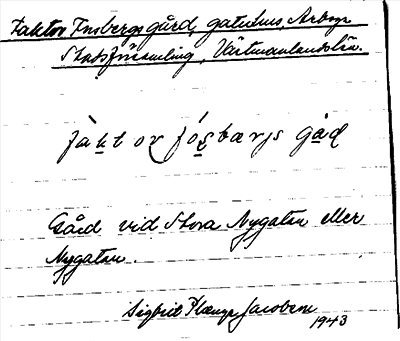 Faktor Fosbergs gård, gatuhus, Arboga
Stadsförsamling, Västmanlands län.
fàkt or fósbærjs gåd
Gård vid Stora Nygatan eller
Nygatan.
Sigbrit Plænge Jacobson
1943